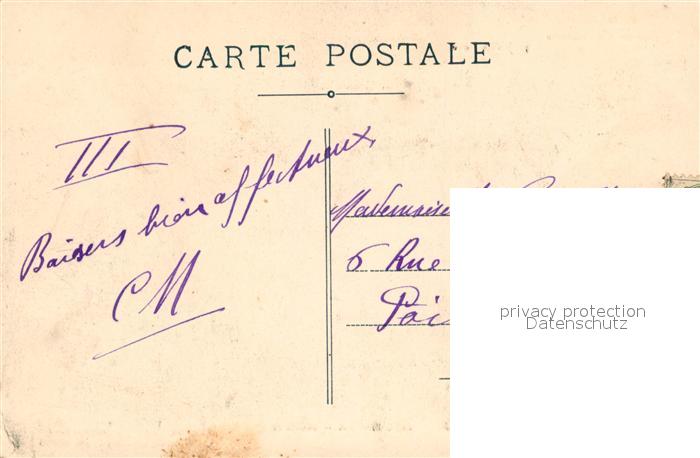 CARTE POSTALE
III
Baisers bien affectueux
CM
Mademoise
6 Rue
privacy protection
Datenschutz